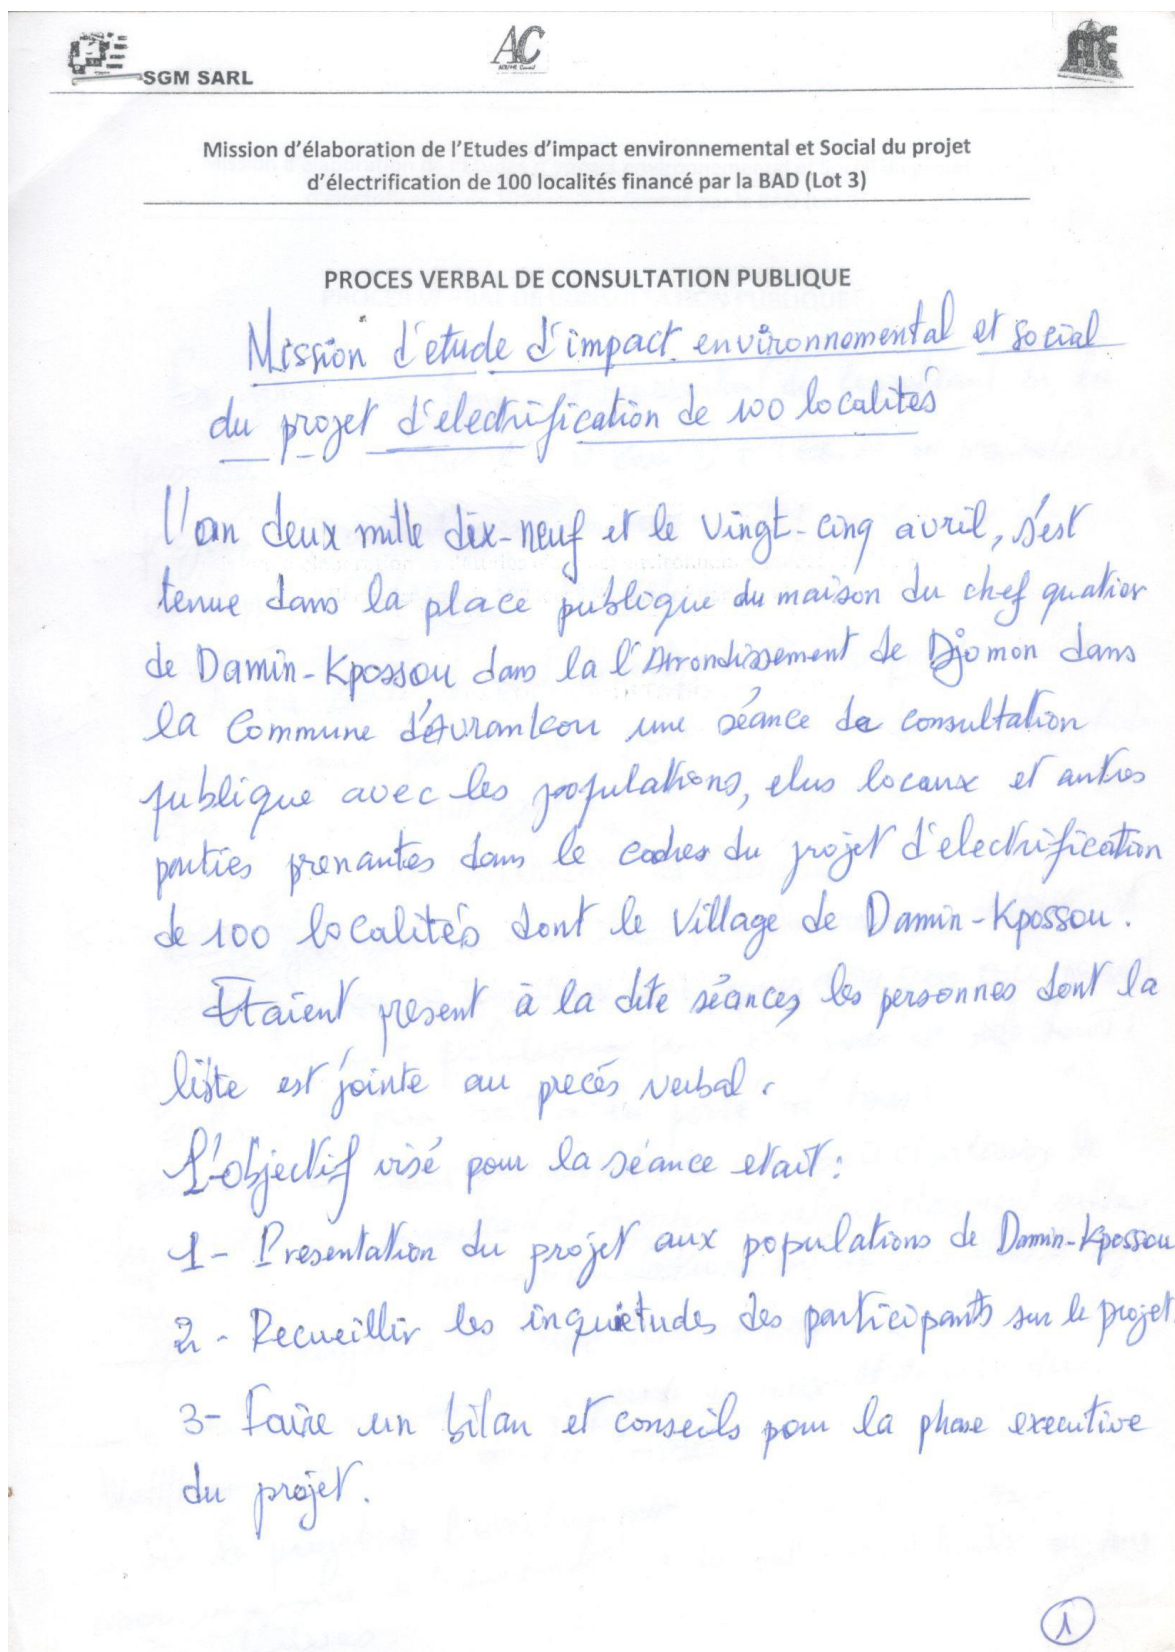 SGM SARL
AC
Mission d'élaboration de l'Etudes d'impact environnemental et Social du projet
d'électrification de 100 localités financé par la BAD (Lot 3)
PROCES VERBAL DE CONSULTATION PUBLIQUE
Mission d'étude d'impact environnemental et social
du projet d'electrification de 100 localités
l'an deux mille dix-neuf et le vingt-cinq avril, s'est
tenue dans la place publoque du maison du chef quatier
de Damin-Kpossou dans la l'Arrondissement de Djomon dans
la Commune d'Avrankou une séance de consultation
publique avec les populations, elus locaux et autres
parties prenantes dans le cadres du projet d'electrification
de 100 localités dont le Village de Damin-Kpossou.
Etaient present à la dite séances les personnes dont la
liste est jointe au precés verbal.
L'objectif visé pour la séance etait :
1- Presentation du projet aux populations de Damin-Kpossou
2- Recueillir les inquiétudes des participants sur le projet.
3- Faire un bilan et conseils pour la phase executive
du projet.
1